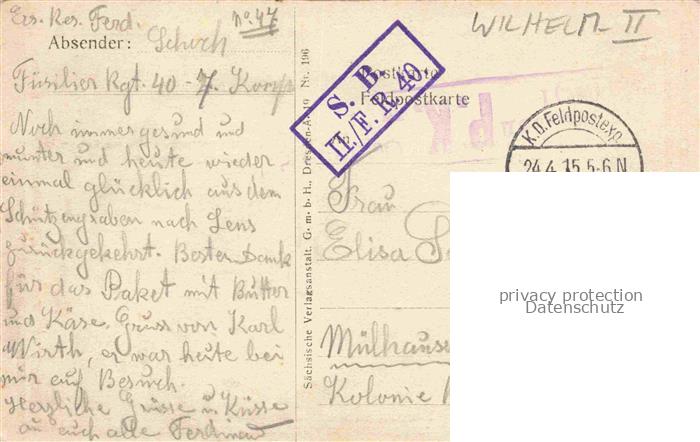 Ers. Res. Ferd.
No. 47
Absender: Schoch
Füsilier Rgt. 40 - 7. Korps
Noch immer gesund und
munter und heute wieder
einmal glücklich aus dem
Schützengraben nach Lens
zurückgekehrt. Besten Dank
für das Paket mit Butter
und Käse. Gruss von Karl
Wirth, er war heute bei
mir auf Besuch.
Herzliche Grüsse u Küsse
an euch alle Ferdinand
Sächsische Verlagsanstalt, G. m. b. H., Dresden-A. 19 Nr. 196
WILHELM II
Postkarte
Feldpostkarte
S. B.
II./F. R. 40.
K.D. Feldpostexp.
24.4.15.5-6N
Frau
Elisa
Mülhause
Kolonie
privacy protection
Datenschutz